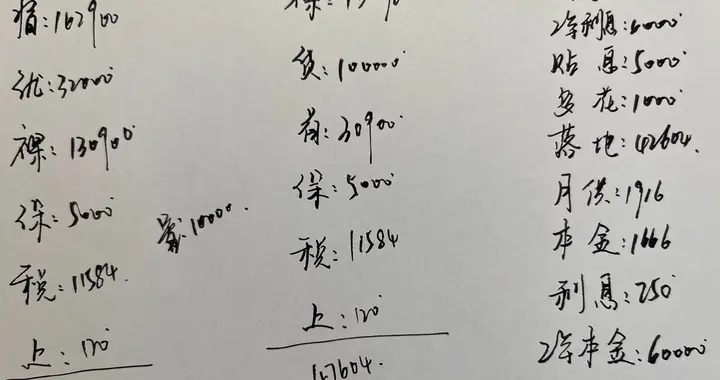 指:162900
优:32000
裸:130900
保:5000
税:11584.
上:120
置:10000.
贷:100000
首:30900
保:5000
税:11584
上:120
47604.
2年利息:6000
贴息:5000
多花:1000
落地:42604.
月供:1916
本金:1666
利息:250
2年本金:60000